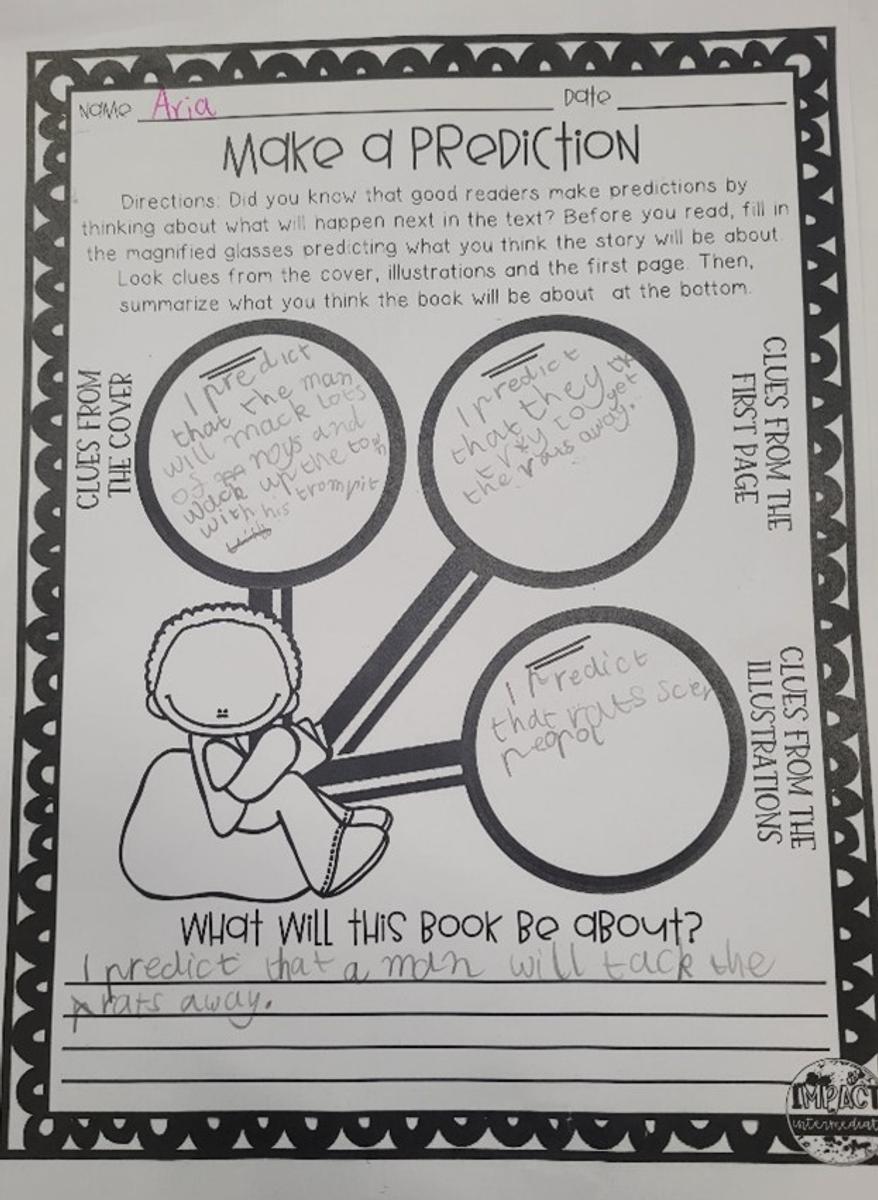 Name Aria Date
Make a Prediction
Directions: Did you know that good readers make predictions by
thinking about what will happen next in the text? Before you read, fill in
the magnified glasses predicting what you think the story will be about.
Look clues from the cover, illustrations and the first page. Then,
summarize what you think the book will be about at the bottom.
CLUES FROM
THE COVER
I predict
that the man
will mack Lots
of noys and
wack up the town
with his trompit
CLUES FROM THE
FIRST PAGE
I predict
that they
try to get
the rats away.
CLUES FROM THE
ILLUSTRATIONS
I predict
that rats scer
pepol
What Will this Book Be about?
I predict that a man will tack the
rats away.
IMPACT
intermediate